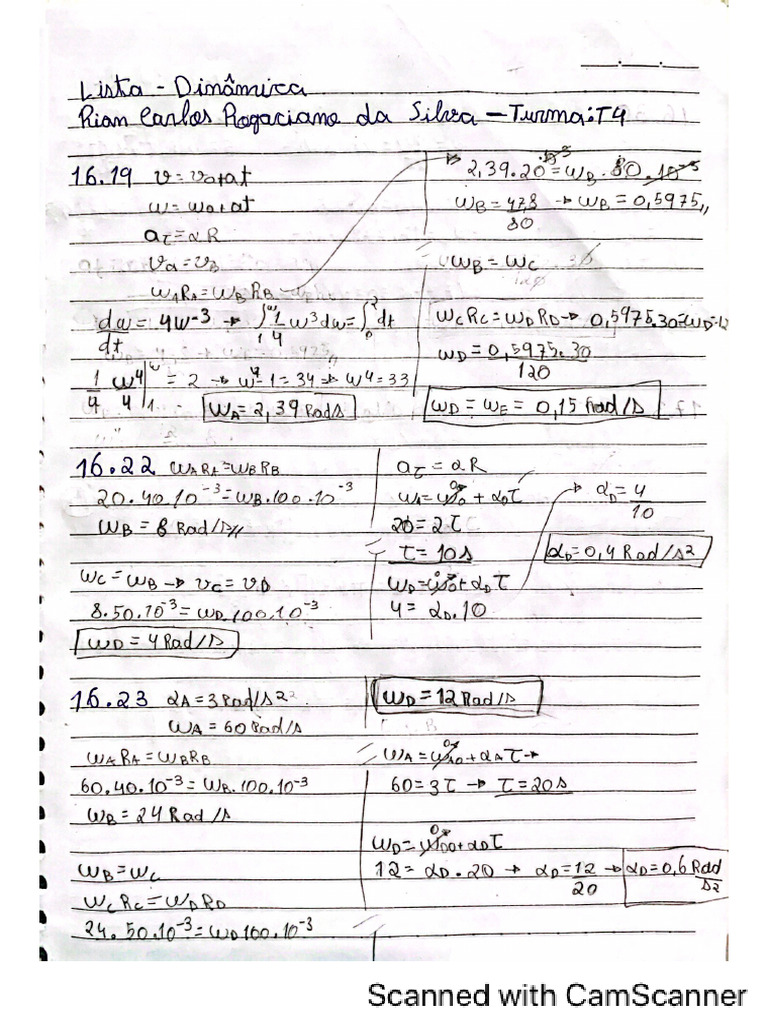 Lista - Dinâmica
Rian Carlos Rogaciano da Silva - Turma: T4
16.19 v = v₀ + at
ω = ω₀ + αt
aτ = αR
vA = vB
ωARA = ωBRB
dω/dt = 4ω⁻³ → ∫₁^ω 1/4 ω³dω = ∫₀² dt
1/4 ω⁴/4 |₁^ω = 2 → ω⁴-1 = 34 → ω⁴ = 33
ωA = 2,39 Rad/s
2,39.20.10⁻³ = ωB.80.10⁻³
ωB = 47,8/80 → ωB = 0,5975,,
ωB = ωC
ωCRC = ωDRD → 0,5975.30 = ωD.12
ωD = 0,5975.30/120
ωD = ωE = 0,15 Rad/s
16.22 ωARA = ωBRB
20.40.10⁻³ = ωB.100.10⁻³
ωB = 8 Rad/s,,
ωC = ωB → vC = vD
8.50.10⁻³ = ωD.100.10⁻³
ωD = 4 Rad/s
aτ = αR
ωA = ωA0 + αDτ
20 = 2τ
τ = 10s
ωD = ωD0 + αDτ
4 = αD.10
αD = 4/10
αD = 0,4 Rad/s²
16.23 αA = 3 Rad/s²
ωA = 60 Rad/s
ωARA = ωBRB
60.40.10⁻³ = ωB.100.10⁻³
ωB = 24 Rad/s
ωB = ωC
ωCRC = ωDRD
24.50.10⁻³ = ωD100.10⁻³
ωD = 12 Rad/s
ωA = ωA0 + αAτ →
60 = 3τ → τ = 20s
ωD = ωD0 + αDτ
12 = αD.20 → αD = 12/20 → αD = 0,6 Rad/s²
Scanned with CamScanner